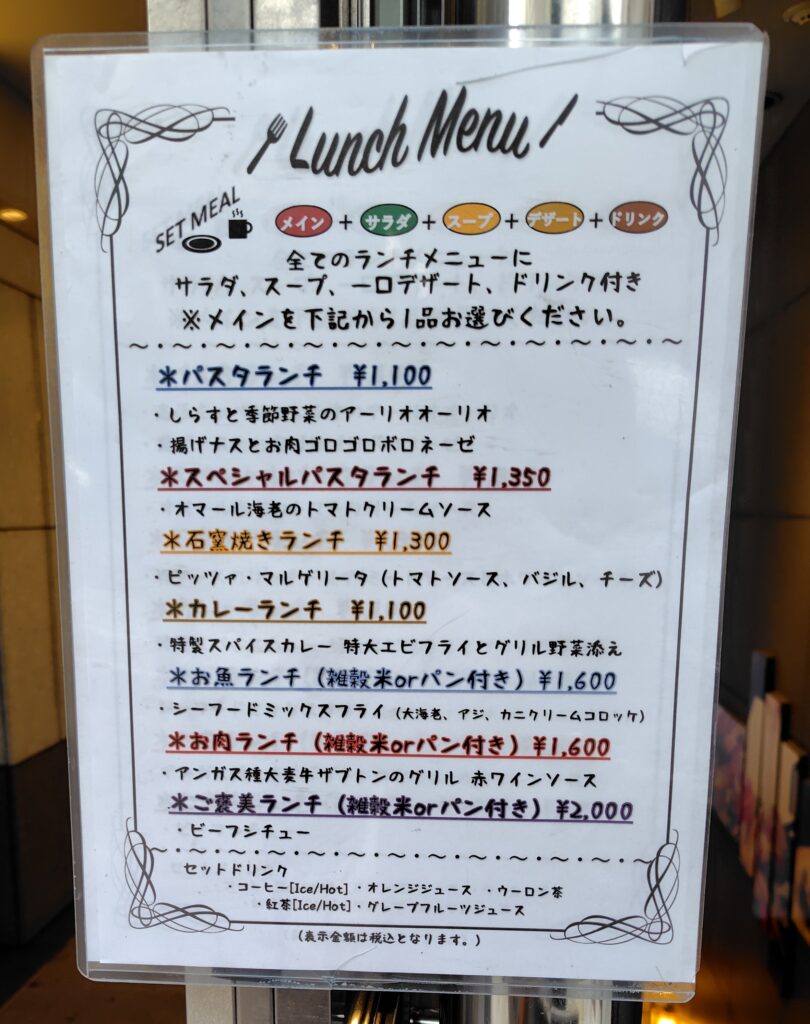 Lunch Menu
SET MEAL
メイン + サラダ + スープ + デザート + ドリンク
全てのランチメニューに
サラダ、スープ、一口デザート、ドリンク付き
※メインを下記から1品お選びください。
*パスタランチ ¥1,100
・しらすと季節野菜のアーリオオーリオ
・揚げナスとお肉ゴロゴロボロネーゼ
*スペシャルパスタランチ ¥1,350
・オマール海老のトマトクリームソース
*石窯焼きランチ ¥1,300
・ピッツァ・マルゲリータ(トマトソース、バジル、チーズ)
*カレーランチ ¥1,100
・特製スパイスカレー 特大エビフライとグリル野菜添え
*お魚ランチ(雑穀米orパン付き)¥1,600
・シーフードミックスフライ(大海老、アジ、カニクリームコロッケ)
*お肉ランチ(雑穀米orパン付き)¥1,600
・アンガス種大麦牛ザブトンのグリル 赤ワインソース
*ご褒美ランチ(雑穀米orパン付き)¥2,000
・ビーフシチュー
セットドリンク
・コーヒー[Ice/Hot] ・オレンジジュース ・ウーロン茶
・紅茶[Ice/Hot] ・グレープフルーツジュース
(表示金額は税込となります。)